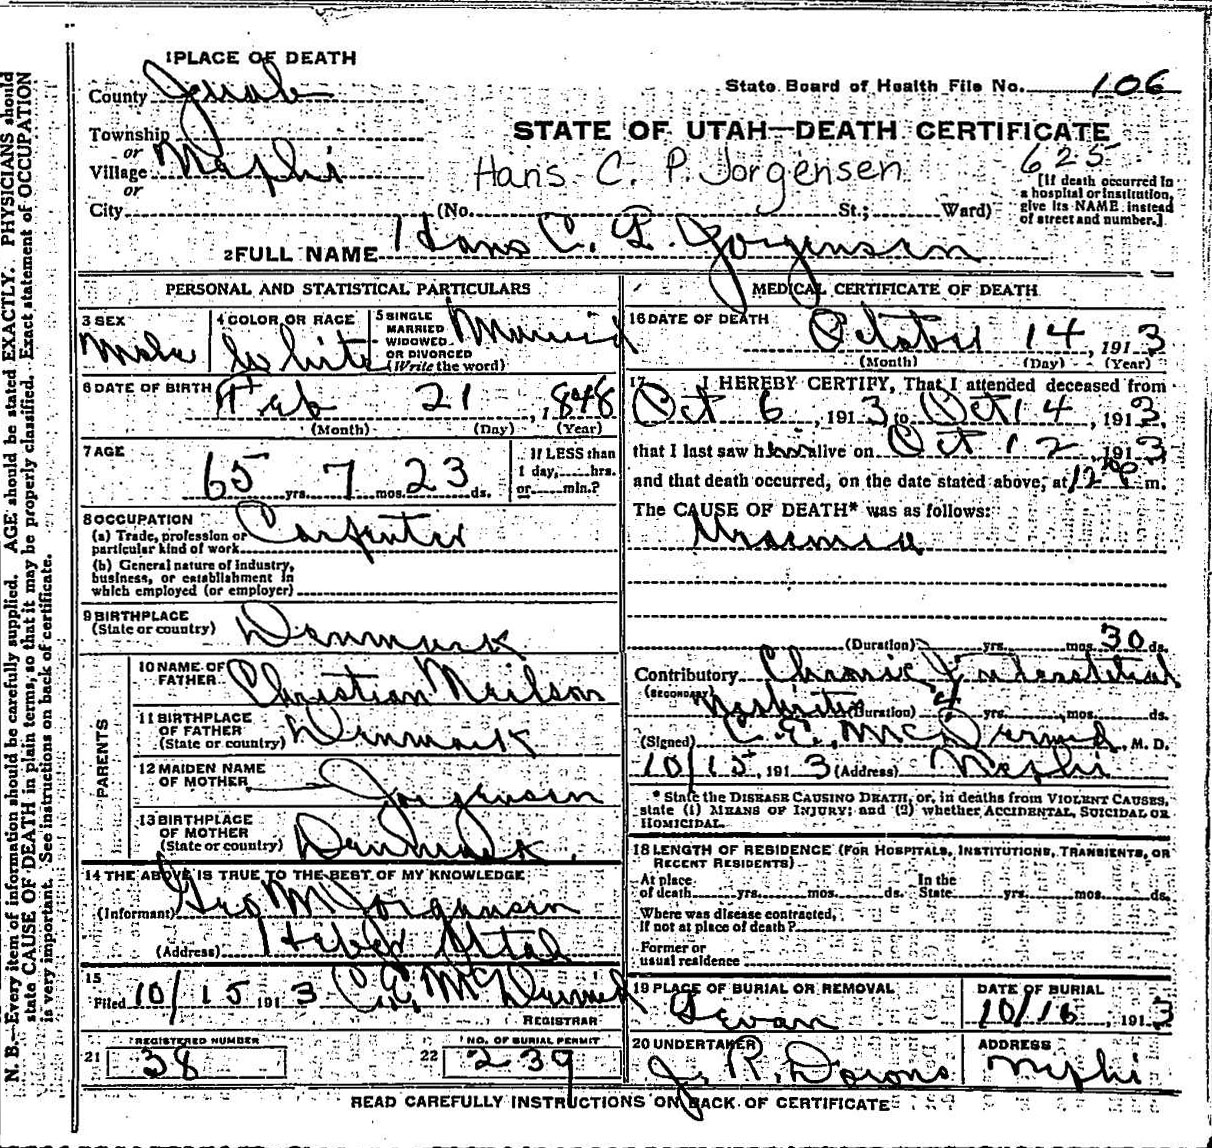 N. B.—Every item of information should be carefully supplied. AGE should be stated EXACTLY. PHYSICIANS should
state CAUSE OF DEATH in plain terms, so that it may be properly classified. Exact statement of OCCUPATION
is very important. See instructions on back of certificate.
1 PLACE OF DEATH
County Juab
State Board of Health File No. 106
Township
or
STATE OF UTAH—DEATH CERTIFICATE
Village Nephi
or
Hans C. P. Jorgensen
625
[If death occurred in
a hospital or institution,
give its NAME instead
of street and number.]
City (No. St.; Ward)
2 FULL NAME Hans C. P. Jorgensen
PERSONAL AND STATISTICAL PARTICULARS
3 SEX
Male
4 COLOR OR RACE
White
5 SINGLE
MARRIED
WIDOWED
OR DIVORCED
(Write the word)
Married
6 DATE OF BIRTH
Feb 21, 1848
(Month) (Day) (Year)
7 AGE
65 yrs. 7 mos. 23 ds.
If LESS than
1 day, hrs.
or min.?
8 OCCUPATION
(a) Trade, profession or
particular kind of work Carpenter
(b) General nature of industry,
business, or establishment in
which employed (or employer)
9 BIRTHPLACE
(State or country) Denmark
PARENTS
10 NAME OF
FATHER Christian Neilson
11 BIRTHPLACE
OF FATHER
(State or country) Denmark
12 MAIDEN NAME
OF MOTHER Jorgensen
13 BIRTHPLACE
OF MOTHER
(State or country) Denmark.
14 THE ABOVE IS TRUE TO THE BEST OF MY KNOWLEDGE
(Informant) Geo M Jorgensen
(Address) Heber Utah
15
Filed 10/15 1913 C. E. McDermid
REGISTRAR
21 REGISTERED NUMBER
38
22 NO. OF BURIAL PERMIT
239
MEDICAL CERTIFICATE OF DEATH
16 DATE OF DEATH
October 14, 1913
(Month) (Day) (Year)
17 I HEREBY CERTIFY, That I attended deceased from
Oct 6, 1913 to Oct 14, 1913
that I last saw him alive on Oct 12, 1913
and that death occurred, on the date stated above, at 12 p m.
The CAUSE OF DEATH* was as follows:
Uraemia
(Duration) yrs. mos. 30 ds.
Contributory Chronic Interstitial
(SECONDARY) Nephritis (Duration) 4 yrs. mos. ds.
(Signed) C. E. McDermid, M. D.
10/15, 1913 (Address) Nephi
* State the DISEASE CAUSING DEATH, or, in deaths from VIOLENT CAUSES,
state (1) MEANS OF INJURY; and (2) whether ACCIDENTAL, SUICIDAL OR
HOMICIDAL.
18 LENGTH OF RESIDENCE (FOR HOSPITALS, INSTITUTIONS, TRANSIENTS, OR
RECENT RESIDENTS)
At place
of death yrs. mos. ds.
In the
State yrs. mos. ds.
Where was disease contracted,
if not at place of death?
Former or
usual residence
19 PLACE OF BURIAL OR REMOVAL
Levan
DATE OF BURIAL
10/16, 1913
20 UNDERTAKER
J. R.
ADDRESS
Nephi
READ CAREFULLY INSTRUCTIONS ON BACK OF CERTIFICATE